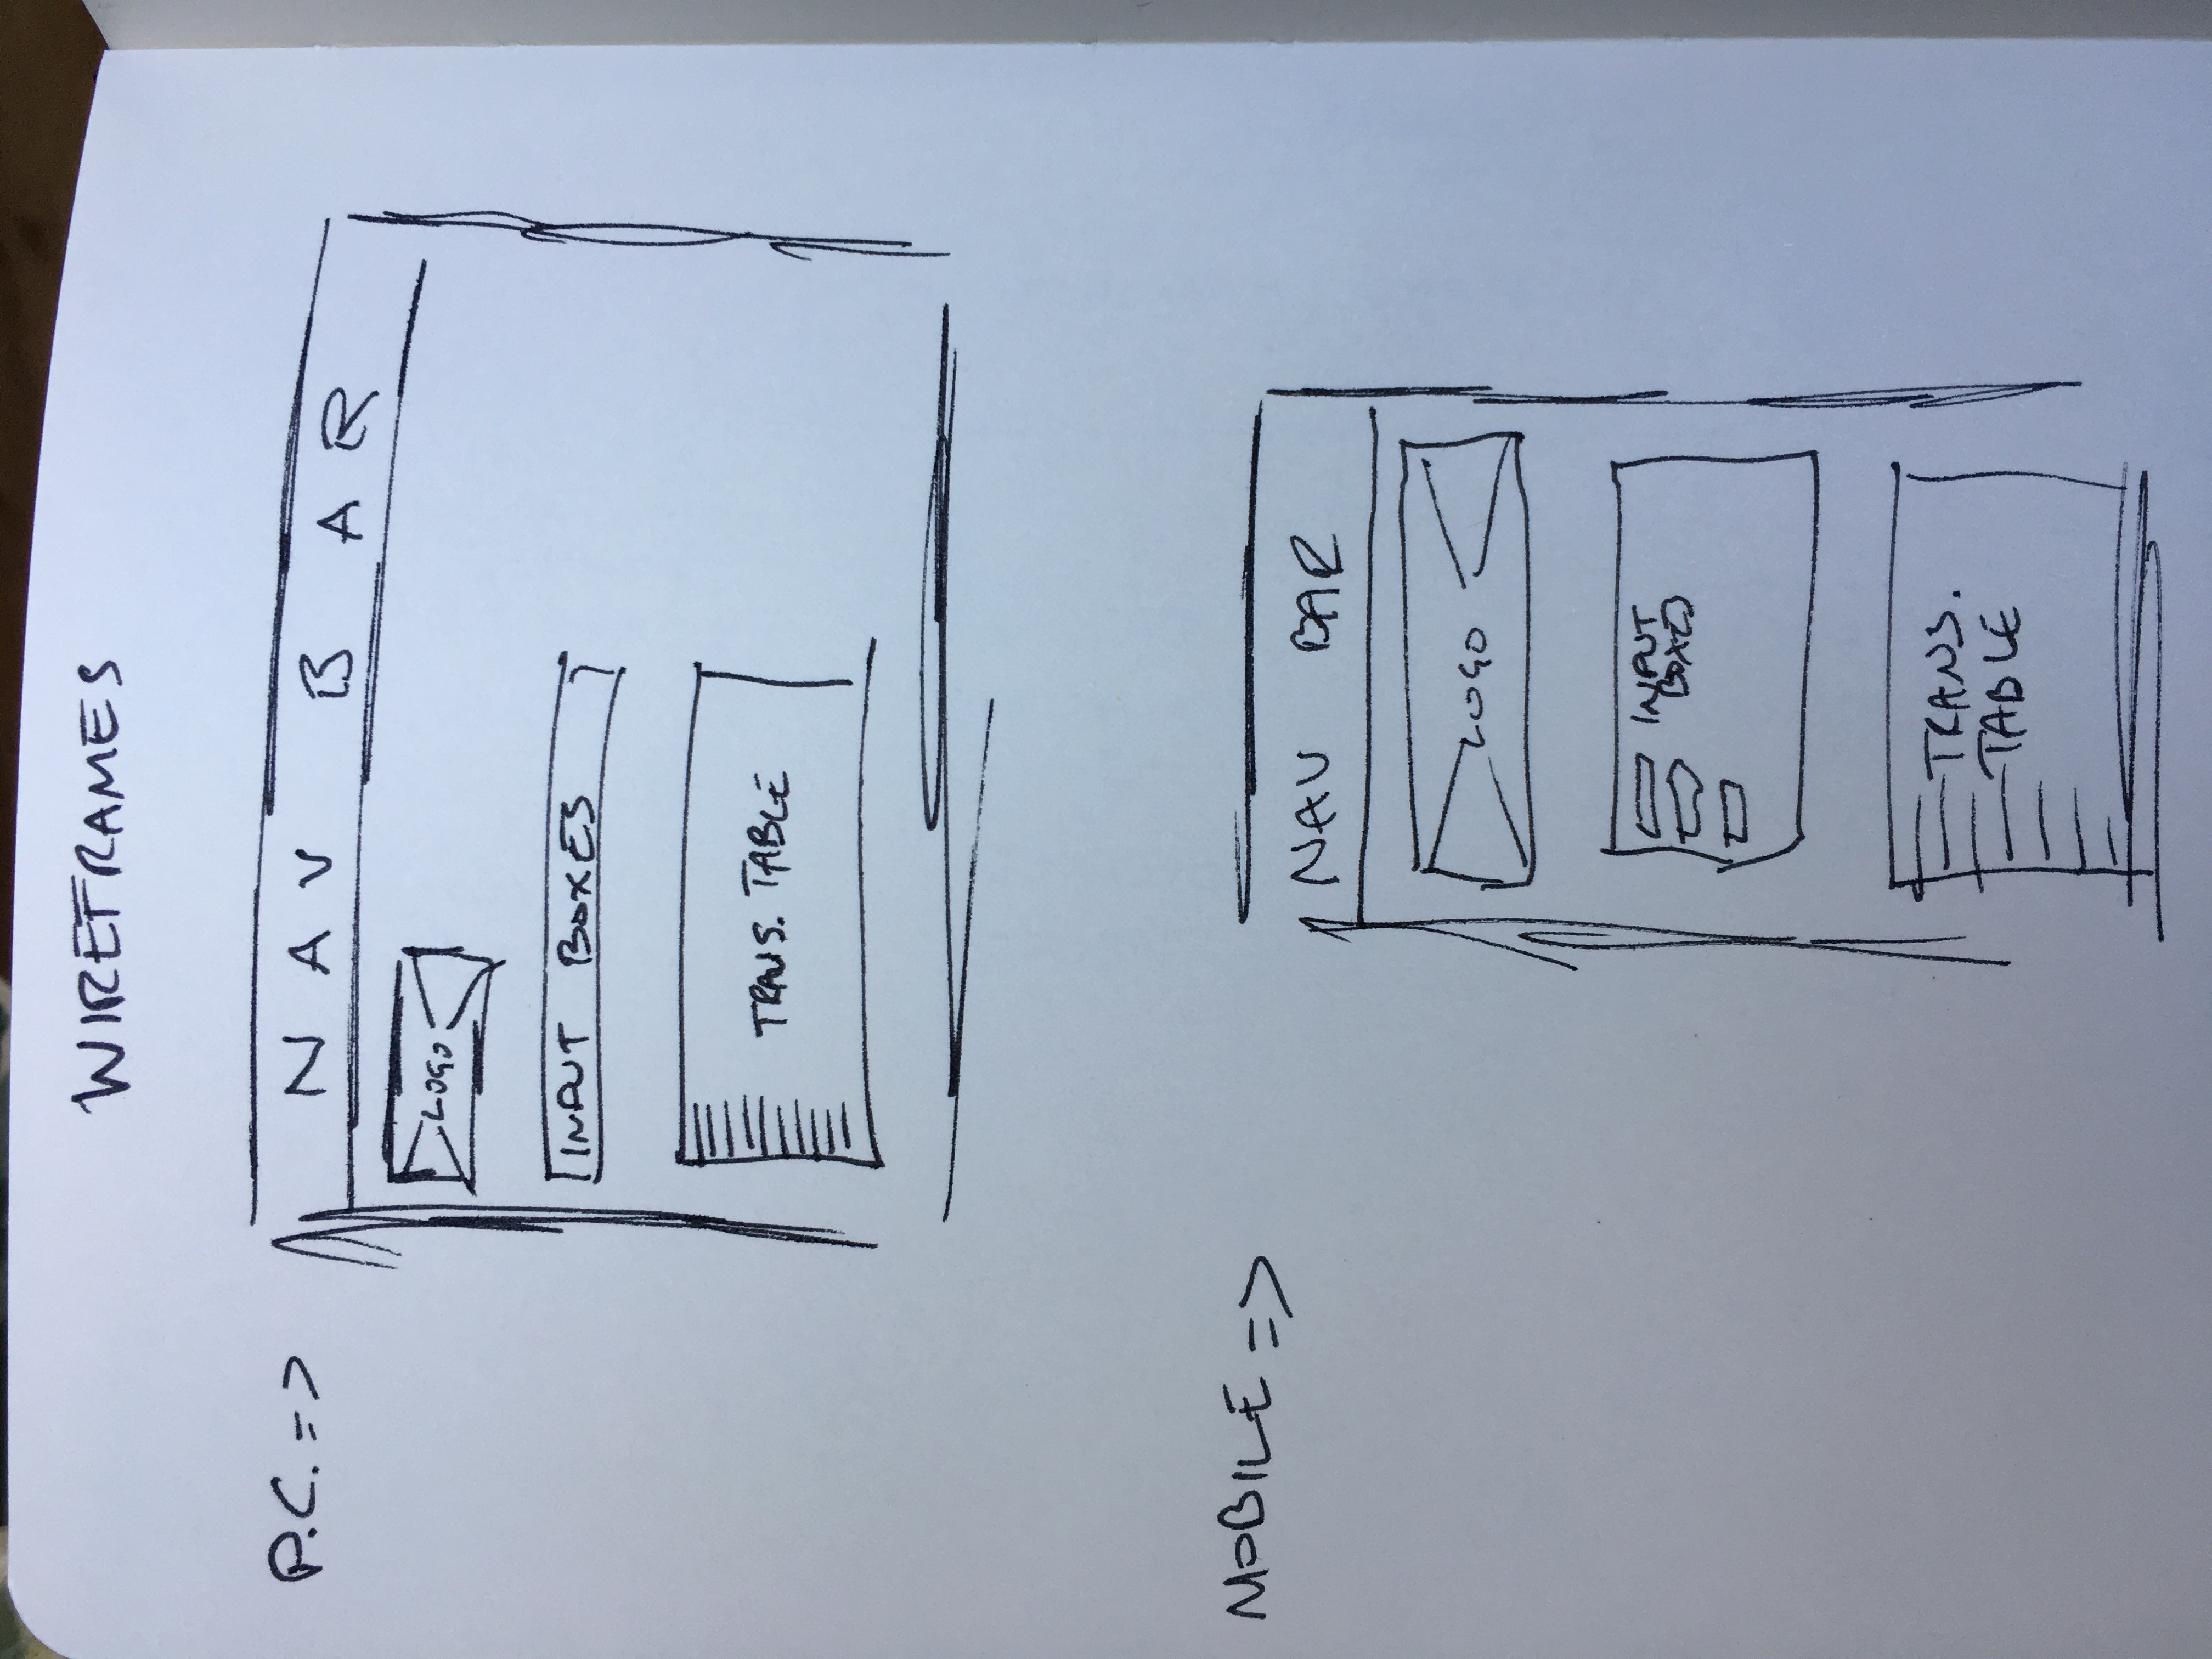 WIREFRAMES
P.C. =>
NAV BAR
LOGO
INPUT BOXES
TRANS. TABLE
MOBILE =>
NAV BAR
LOGO
INPUT
BOXES
TRANS.
TABLE